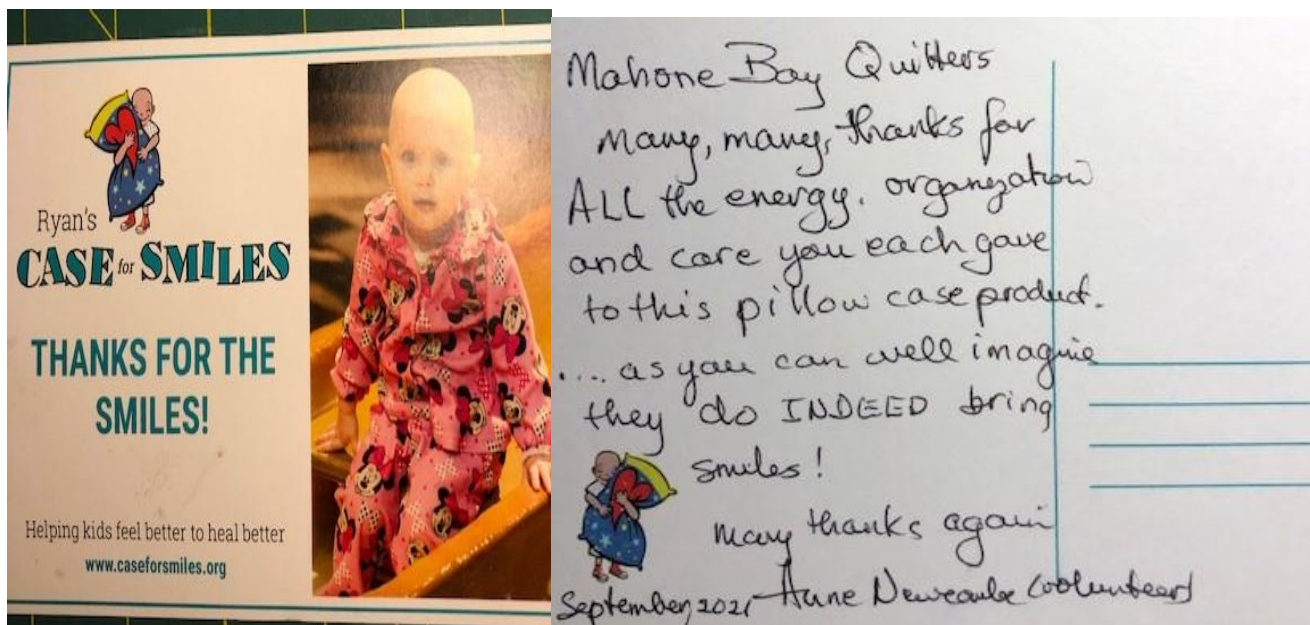 Ryan's
CASE for SMILES
THANKS FOR THE
SMILES!
Helping kids feel better to heal better
www.caseforsmiles.org
Mahone Bay Quilters
Many, many, thanks for
ALL the energy. organization
and care you each gave
to this pillow case product.
.... as you can well imagine
they do INDEED bring
smiles!
many thanks again
September, 2021 Anne Newcombe (volunteer)